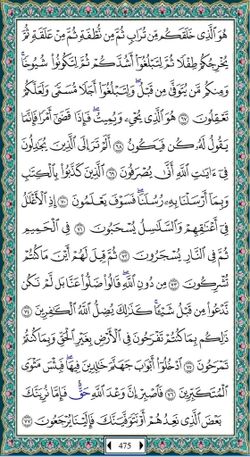 هُوَ ٱلَّذِى خَلَقَكُم مِّن تُرَابٍ ثُمَّ مِن نُّطْفَةٍ ثُمَّ مِنْ عَلَقَةٍ ثُمَّ
يُخْرِجُكُمْ طِفْلًا ثُمَّ لِتَبْلُغُوٓا۟ أَشُدَّكُمْ ثُمَّ لِتَكُونُوا۟ شُيُوخًا ۚ
وَمِنكُم مَّن يُتَوَفَّىٰ مِن قَبْلُ ۖ وَلِتَبْلُغُوٓا۟ أَجَلًا مُّسَمًّى وَلَعَلَّكُمْ
تَعْقِلُونَ ٦٧ هُوَ ٱلَّذِى يُحْىِۦ وَيُمِيتُ ۖ فَإِذَا قَضَىٰٓ أَمْرًا فَإِنَّمَا
يَقُولُ لَهُۥ كُن فَيَكُونُ ٦٨ أَلَمْ تَرَ إِلَى ٱلَّذِينَ يُجَٰدِلُونَ
فِىٓ ءَايَٰتِ ٱللَّهِ أَنَّىٰ يُصْرَفُونَ ٦٩ ٱلَّذِينَ كَذَّبُوا۟ بِٱلْكِتَٰبِ
وَبِمَآ أَرْسَلْنَا بِهِۦ رُسُلَنَا ۖ فَسَوْفَ يَعْلَمُونَ ٧٠ إِذِ ٱلْأَغْلَٰلُ
فِىٓ أَعْنَٰقِهِمْ وَٱلسَّلَٰسِلُ يُسْحَبُونَ ٧١ فِى ٱلْحَمِيمِ
ثُمَّ فِى ٱلنَّارِ يُسْجَرُونَ ٧٢ ثُمَّ قِيلَ لَهُمْ أَيْنَ مَا كُنتُمْ
تُشْرِكُونَ ٧٣ مِن دُونِ ٱللَّهِ ۖ قَالُوا۟ ضَلُّوا۟ عَنَّا بَل لَّمْ نَكُن
نَّدْعُوا۟ مِن قَبْلُ شَيْـًٔا ۚ كَذَٰلِكَ يُضِلُّ ٱللَّهُ ٱلْكَٰفِرِينَ ٧٤
ذَٰلِكُم بِمَا كُنتُمْ تَفْرَحُونَ فِى ٱلْأَرْضِ بِغَيْرِ ٱلْحَقِّ وَبِمَا كُنتُمْ
تَمْرَحُونَ ٧٥ ٱدْخُلُوٓا۟ أَبْوَٰبَ جَهَنَّمَ خَٰلِدِينَ فِيهَا ۖ فَبِئْسَ مَثْوَى
ٱلْمُتَكَبِّرِينَ ٧٦ فَٱصْبِرْ إِنَّ وَعْدَ ٱللَّهِ حَقٌّ ۚ فَإِمَّا نُرِيَنَّكَ
بَعْضَ ٱلَّذِى نَعِدُهُمْ أَوْ نَتَوَفَّيَنَّكَ فَإِلَيْنَا يُرْجَعُونَ ٧٧
475